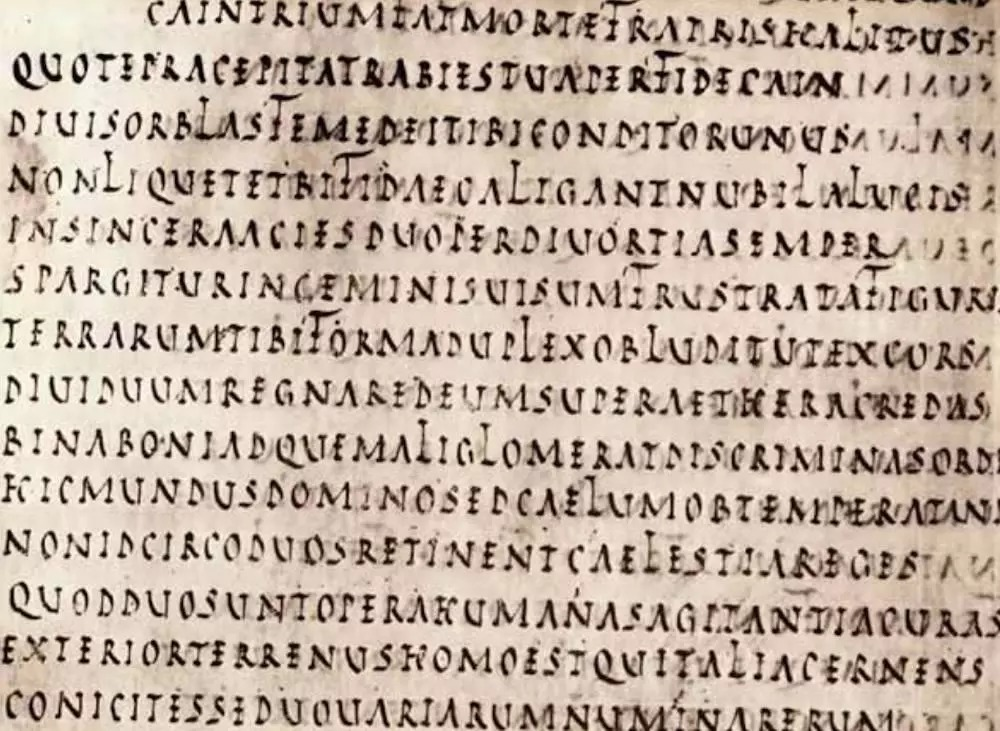 CAINTRIUMFATMORTEFRATRISHALITUS
QUOTEPRACEPITATRABIESTUAPERFIDECAIN
DIUISORBLASFEMEDEITIBICONDITORUNUS
NONLIQUETETBIFIDAECALIGANTNUBILALUCIS
INSINCERAACIESDUOPERDIUORTIASEMPER
SPARGITURINGEMINISUISUMFRUSTRATAFIGURI
TERRARUMTIBIFORMADUPLEXOBLUDITUTEXCORS
DIUIDUUMREGNAREDEUMSUPERAETHERACREDAS
BINABONIADQUEMALIGLOMERATDISCRIMINASORD
HICMUNDUSDOMINOSEDCAELUMOBTEMPERATUNI
NONIDCIRCODUOSRETINENTCAELESTIAREGES
QUODDUOSUNTOPERAHUMANASAGITANTIACURAS
EXTERIORTERRENUSHOMOESTQUITALIACERNENS
CONICITESSEDUOUARIARUMNUMINARERUM